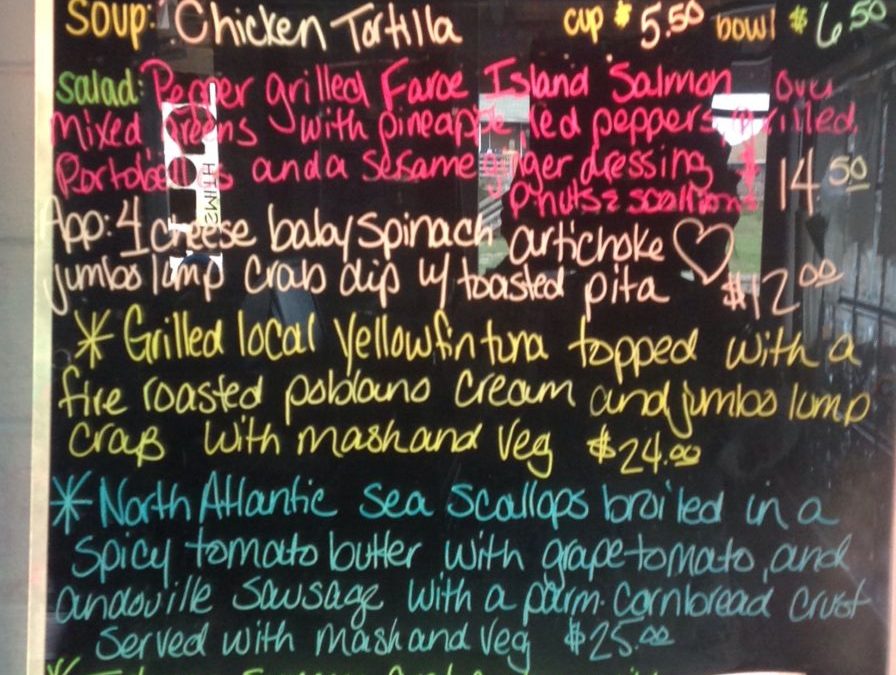 Soup: Chicken Tortilla cup $5.50 bowl $6.50
Salad: Pepper grilled Faroe Island Salmon over
mixed greens with pineapple, red peppers, grilled
Portobellos and a sesame ginger dressing + 14.50
pnuts & scallions
App: 4 cheese baby spinach artichoke
jumbo lump crab dip w/ toasted pita $12.00
* Grilled local yellowfin tuna topped with a
fire roasted poblano cream and jumbo lump
crab with mash and veg $24.00
* North Atlantic Sea Scallops broiled in a
spicy tomato butter with grape tomato, and
andouille sausage with a parm. cornbread crust
served with mash and veg $25.00